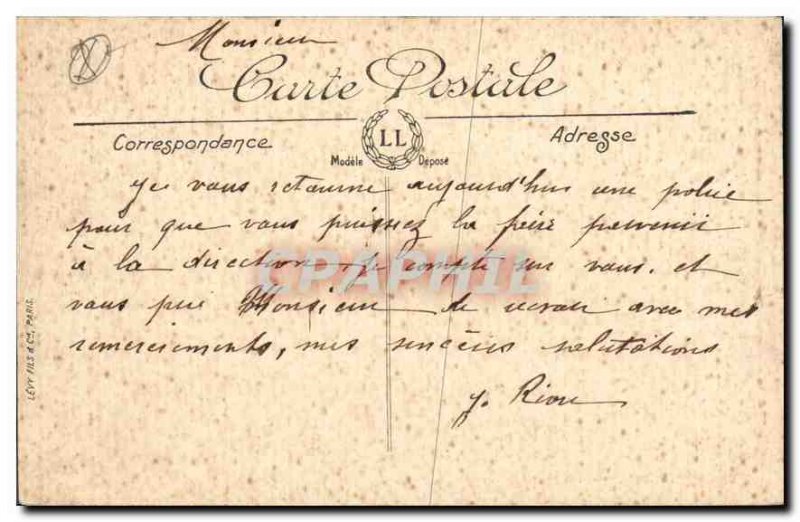 Monsieur
Carte Postale
Correspondance
LL
Modèle Déposé
Adresse
Je vous retourne aujourd'hui une police
pour que vous puissiez la faire parvenir
à la direction je compte sur vous. et
vous prie Monsieur de recevoir avec mes
remerciements, mes sincères salutations
y. Riou
CPAPHIL
LÉVY FILS & Cie, PARIS.